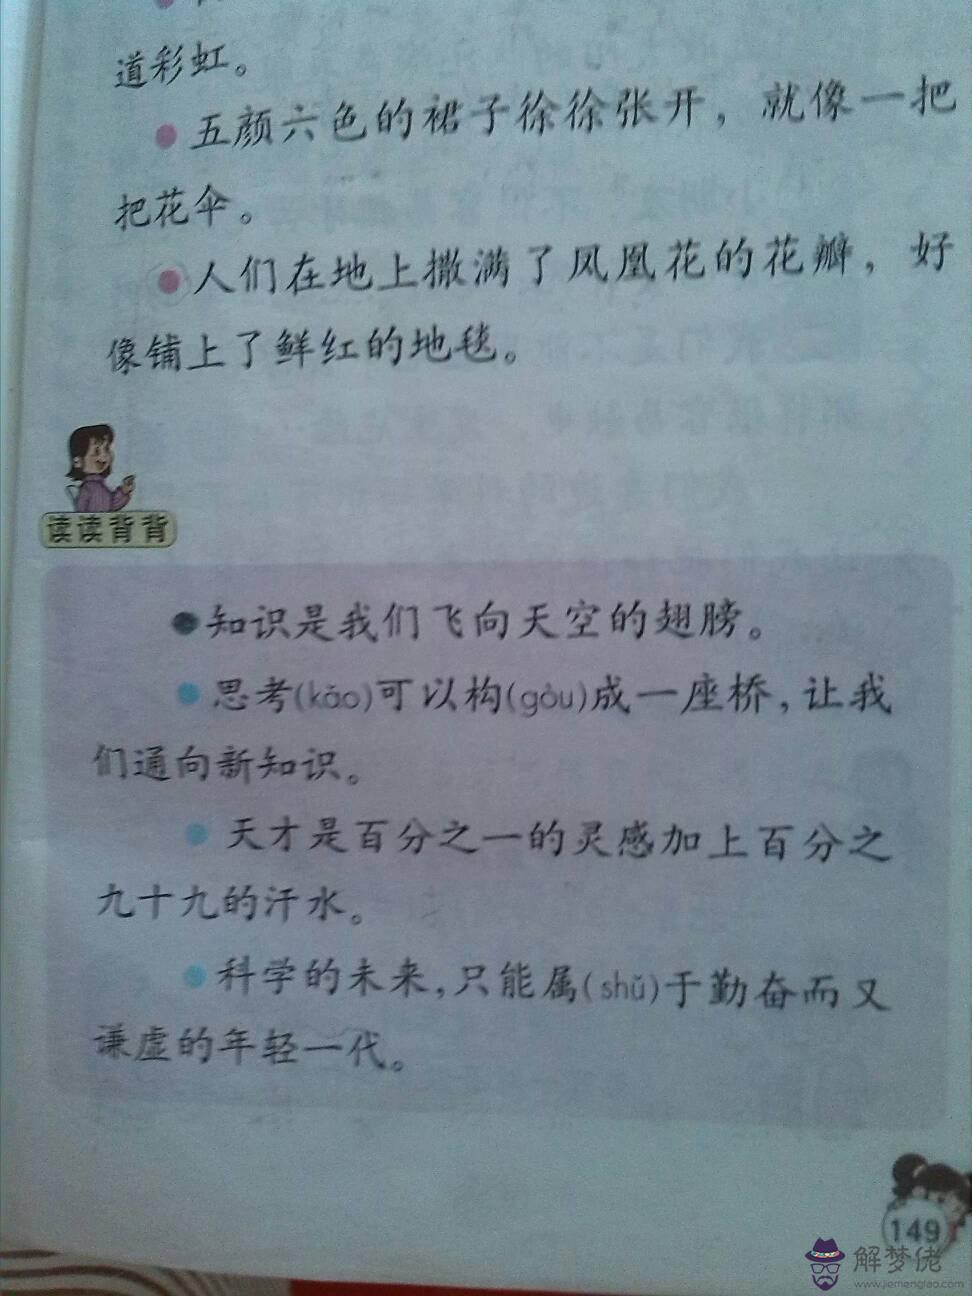 道彩虹。
●五颜六色的裙子徐徐张开，就像一把
把花伞。
●人们在地上撒满了凤凰花的花瓣，好
像铺上了鲜红的地毯。
读读背背
●知识是我们飞向天空的翅膀。
●思考(kǎo)可以构(gòu)成一座桥,让我
们通向新知识。
●天才是百分之一的灵感加上百分之
九十九的汗水。
●科学的未来,只能属(shǔ)于勤奋而又
谦虚的年轻一代。
149
解梦佬
www.jiemenglao.com